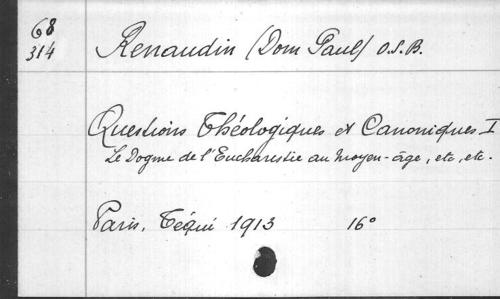 68
314
Renaudin (Dom Paul) O.S.B.
Questions Théologiques et Canoniques I
Le Dogme de l'Eucharestie au moyen-âge, etc, etc.
Paris, Téqui 1913 16°